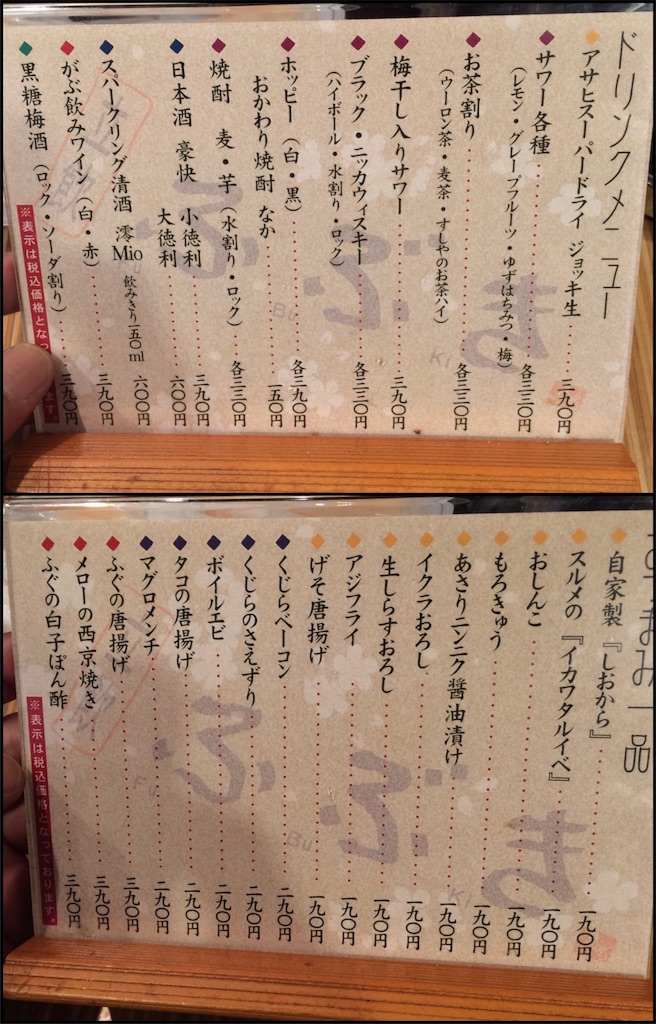 ドリンクメニュー
アサヒスーパードライ ジョッキ生 三九〇円
サワー各種 各三三〇円
(レモン・グレープフルーツ・ゆずはちみつ・梅)
お茶割り 各三三〇円
(ウーロン茶・麦茶・すしやのお茶ハイ)
梅干し入りサワー 三九〇円
ブラック・ニッカウィスキー 各三三〇円
(ハイボール・水割り・ロック)
ホッピー (白・黒) 各三九〇円
おかわり焼酎 なか 一五〇円
焼酎 麦・芋 (水割り・ロック) 各三三〇円
日本酒 豪快 小徳利 三九〇円
大徳利 六〇〇円
スパークリング清酒 澪Mio 飲みきり一五〇ml 六〇〇円
がぶ飲みワイン (白・赤) 三九〇円
黒糖梅酒 (ロック・ソーダ割り) 三九〇円
※表示は税込価格とな
ます。
おつまみ一品
自家製『しおから』 一九〇円
スルメの『イカワタルイベ』 一九〇円
おしんこ 一九〇円
もろきゅう 一九〇円
あさりニンニク醤油漬け 一九〇円
イクラおろし 一九〇円
生しらすおろし 一九〇円
アジフライ 一九〇円
げそ唐揚げ 一九〇円
くじらベーコン 二九〇円
くじらのさえずり 二九〇円
ボイルエビ 二九〇円
タコの唐揚げ 二九〇円
マグロメンチ 二九〇円
ふぐの唐揚げ 三九〇円
メローの西京焼き 三九〇円
ふぐの白子ぽん酢 三九〇円
※表示は税込価格となっております。